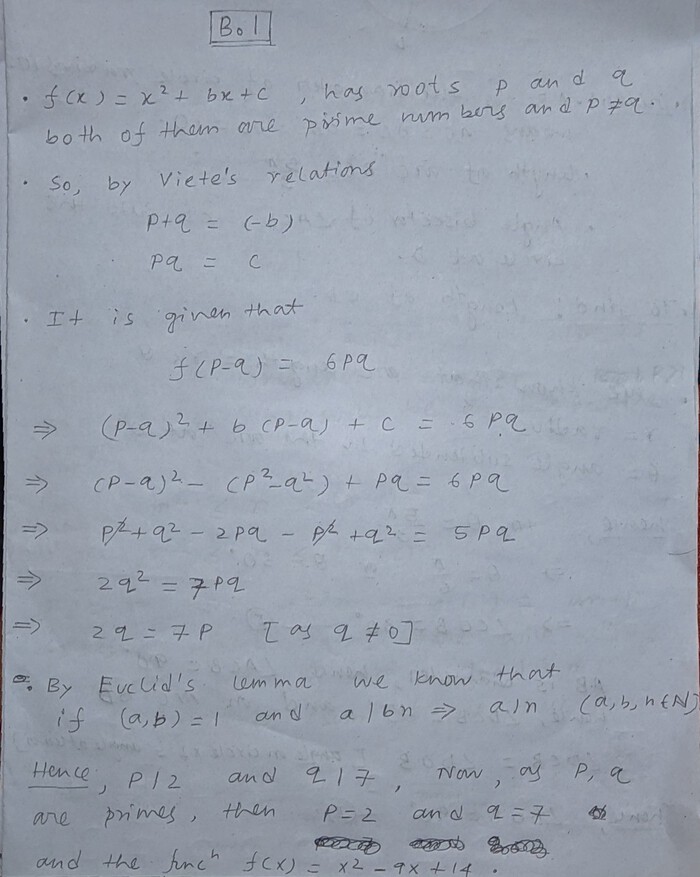 B.1
• f(x) = x² + bx + c , has roots p and q
both of them are prime numbers and p ≠ q.
• So, by Viete's relations
p+q = (-b)
pq = c
• It is given that
f(p-q) = 6pq
⇒ (p-q)² + b (p-q) + c = 6pq
⇒ (p-q)² - (p²-q²) + pq = 6pq
⇒ p² + q² - 2pq - p² + q² = 5pq
⇒ 2q² = 7pq
⇒ 2q = 7p [as q ≠ 0]
• By Euclid's lemma we know that
if (a,b) = 1 and a|bn ⇒ a|n (a,b,n ∈ N)
Hence, p|2 and q|7, Now, as p, q
are primes, then p=2 and q=7
and the funcⁿ f(x) = x2 - 9x + 14 .